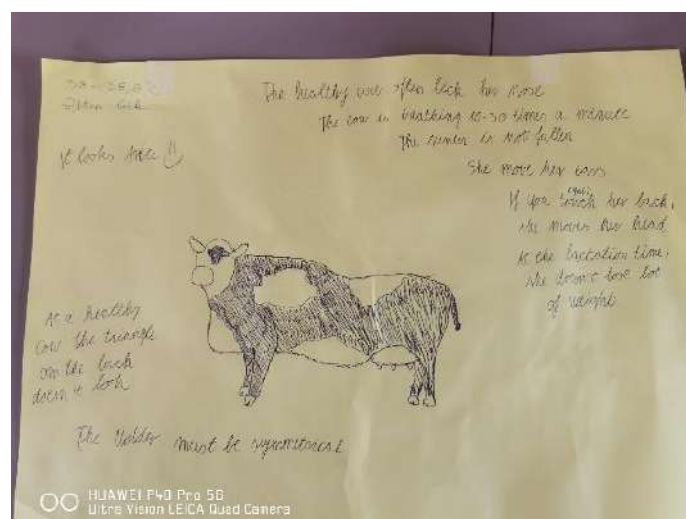 Often lick
The healthy cow often lick her nose
The cow is breathing 10-30 times a minute
The rumen is not fallen
She move her ears
It looks
If you touch her back,
she moves her head
At the lactation time,
she doesn't lose lot
of weight
At a healthy
cow the triangle
on the back
doesn't
The Udder must be symmetrical
HUAWEI P40 Pro 5G
Ultra Vision LEICA Quad Camera